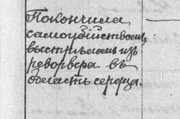 Покончила
самоубійствомъ
выстрѣломъ изъ
револьвера въ
область сердца.